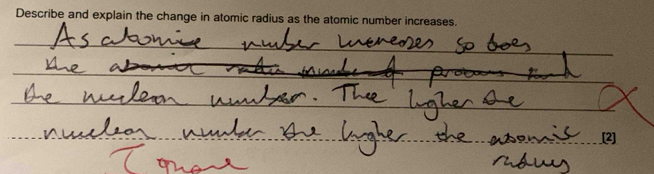 Describe and explain the change in atomic radius as the atomic number increases.
As atomic number increases so does
the
the nucleon number. The higher the
nucleon number the higher the atomic [2]
radius